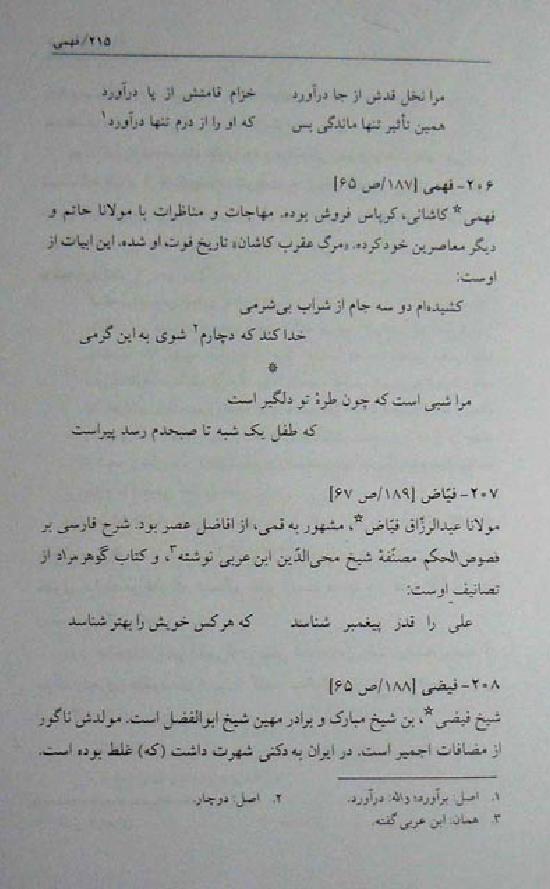 ۲۱۵/فهمی
مرا نخل قدش از جا درآورد خرام قامتش از پا درآورد
همین تأثیر تنها ماندگی بس که او را از درم تنها درآورد۱
۲۰۶- فهمی [۱۸۷/ص ۶۵]
فهمی* کاشانی، کرپاس فروش بوده. مهاجات و مناظرات با مولانا حاتم و
دیگر معاصرین خود کرده. «مرگ عقرب کاشان» تاریخ فوت او شده. این ابیات از
اوست:
کشیده‌ام دو سه جام از شراب بی‌شرمی
خدا کند که دچارم۲ شوی به این گرمی
*
مرا شبی است که چون طرهٔ تو دلگیر است
که طفل یک شبه تا صبحدم رسد پیراست
۲۰۷- فیّاض [۱۸۹/ص ۶۷]
مولانا عبدالرزّاق فیّاض*، مشهور به قمی، از افاضل عصر بود. شرح فارسی بر
فصوص‌الحکم مصنّفهٔ شیخ محی‌الدّین ابن عربی نوشته۳، و کتاب گوهر مراد از
تصانیف اوست:
علی را قدر پیغمبر شناسد که هر کس خویش را بهتر شناسد
۲۰۸- فیضی [۱۸۸/ص ۶۵]
شیخ فیضی*، بن شیخ مبارک و برادر مهین شیخ ابوالفضل است. مولدش ناگور
از مضافات اجمیر است. در ایران به دکنی شهرت داشت (که) غلط بوده است.
۱. اصل: برآورد؛ واله: درآورد. ۲. اصل: دوچار.
۳. همان: ابن عربی گفته.